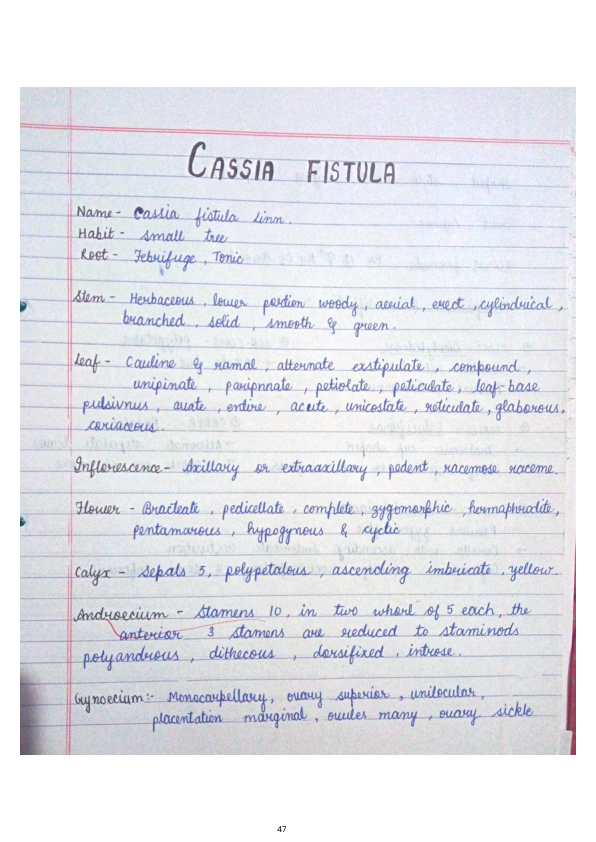 CASSIA FISTULA
Name - Cassia fistula Linn.
Habit - small tree
Root - Febrifuge, Tonic
Stem - Herbaceous, lower portion woody, aerial, erect, cylindrical,
branched, solid, smooth & green.
Leaf - Cauline & ramal, alternate exstipulate, compound,
unipinate, paripnnate, petiolate, peticulate, leaf-base
pulsivnus, auate, entire, acute, unicostate, reticulate, glaborous.
coriaceous.
Inflorescence - Axillary or extraaxillary, pedent, racemose raceme.
Flower - Bracteate, pedicellate, complete, zygomorphic, hermaphrodite,
pentamarous, hypogynous & cyclic
Calyx - Sepals 5, polypetalous, ascending imbricate, yellow.
Androecium - Stamens 10, in two whorl of 5 each, the
anterior 3 stamens are reduced to staminods
polyandrous, dithecous, dorsifixed, introse.
Gynoecium:- Monocarpellary, ovary superior, unilocular,
placentation marginal, ovules many, ovary sickle
47